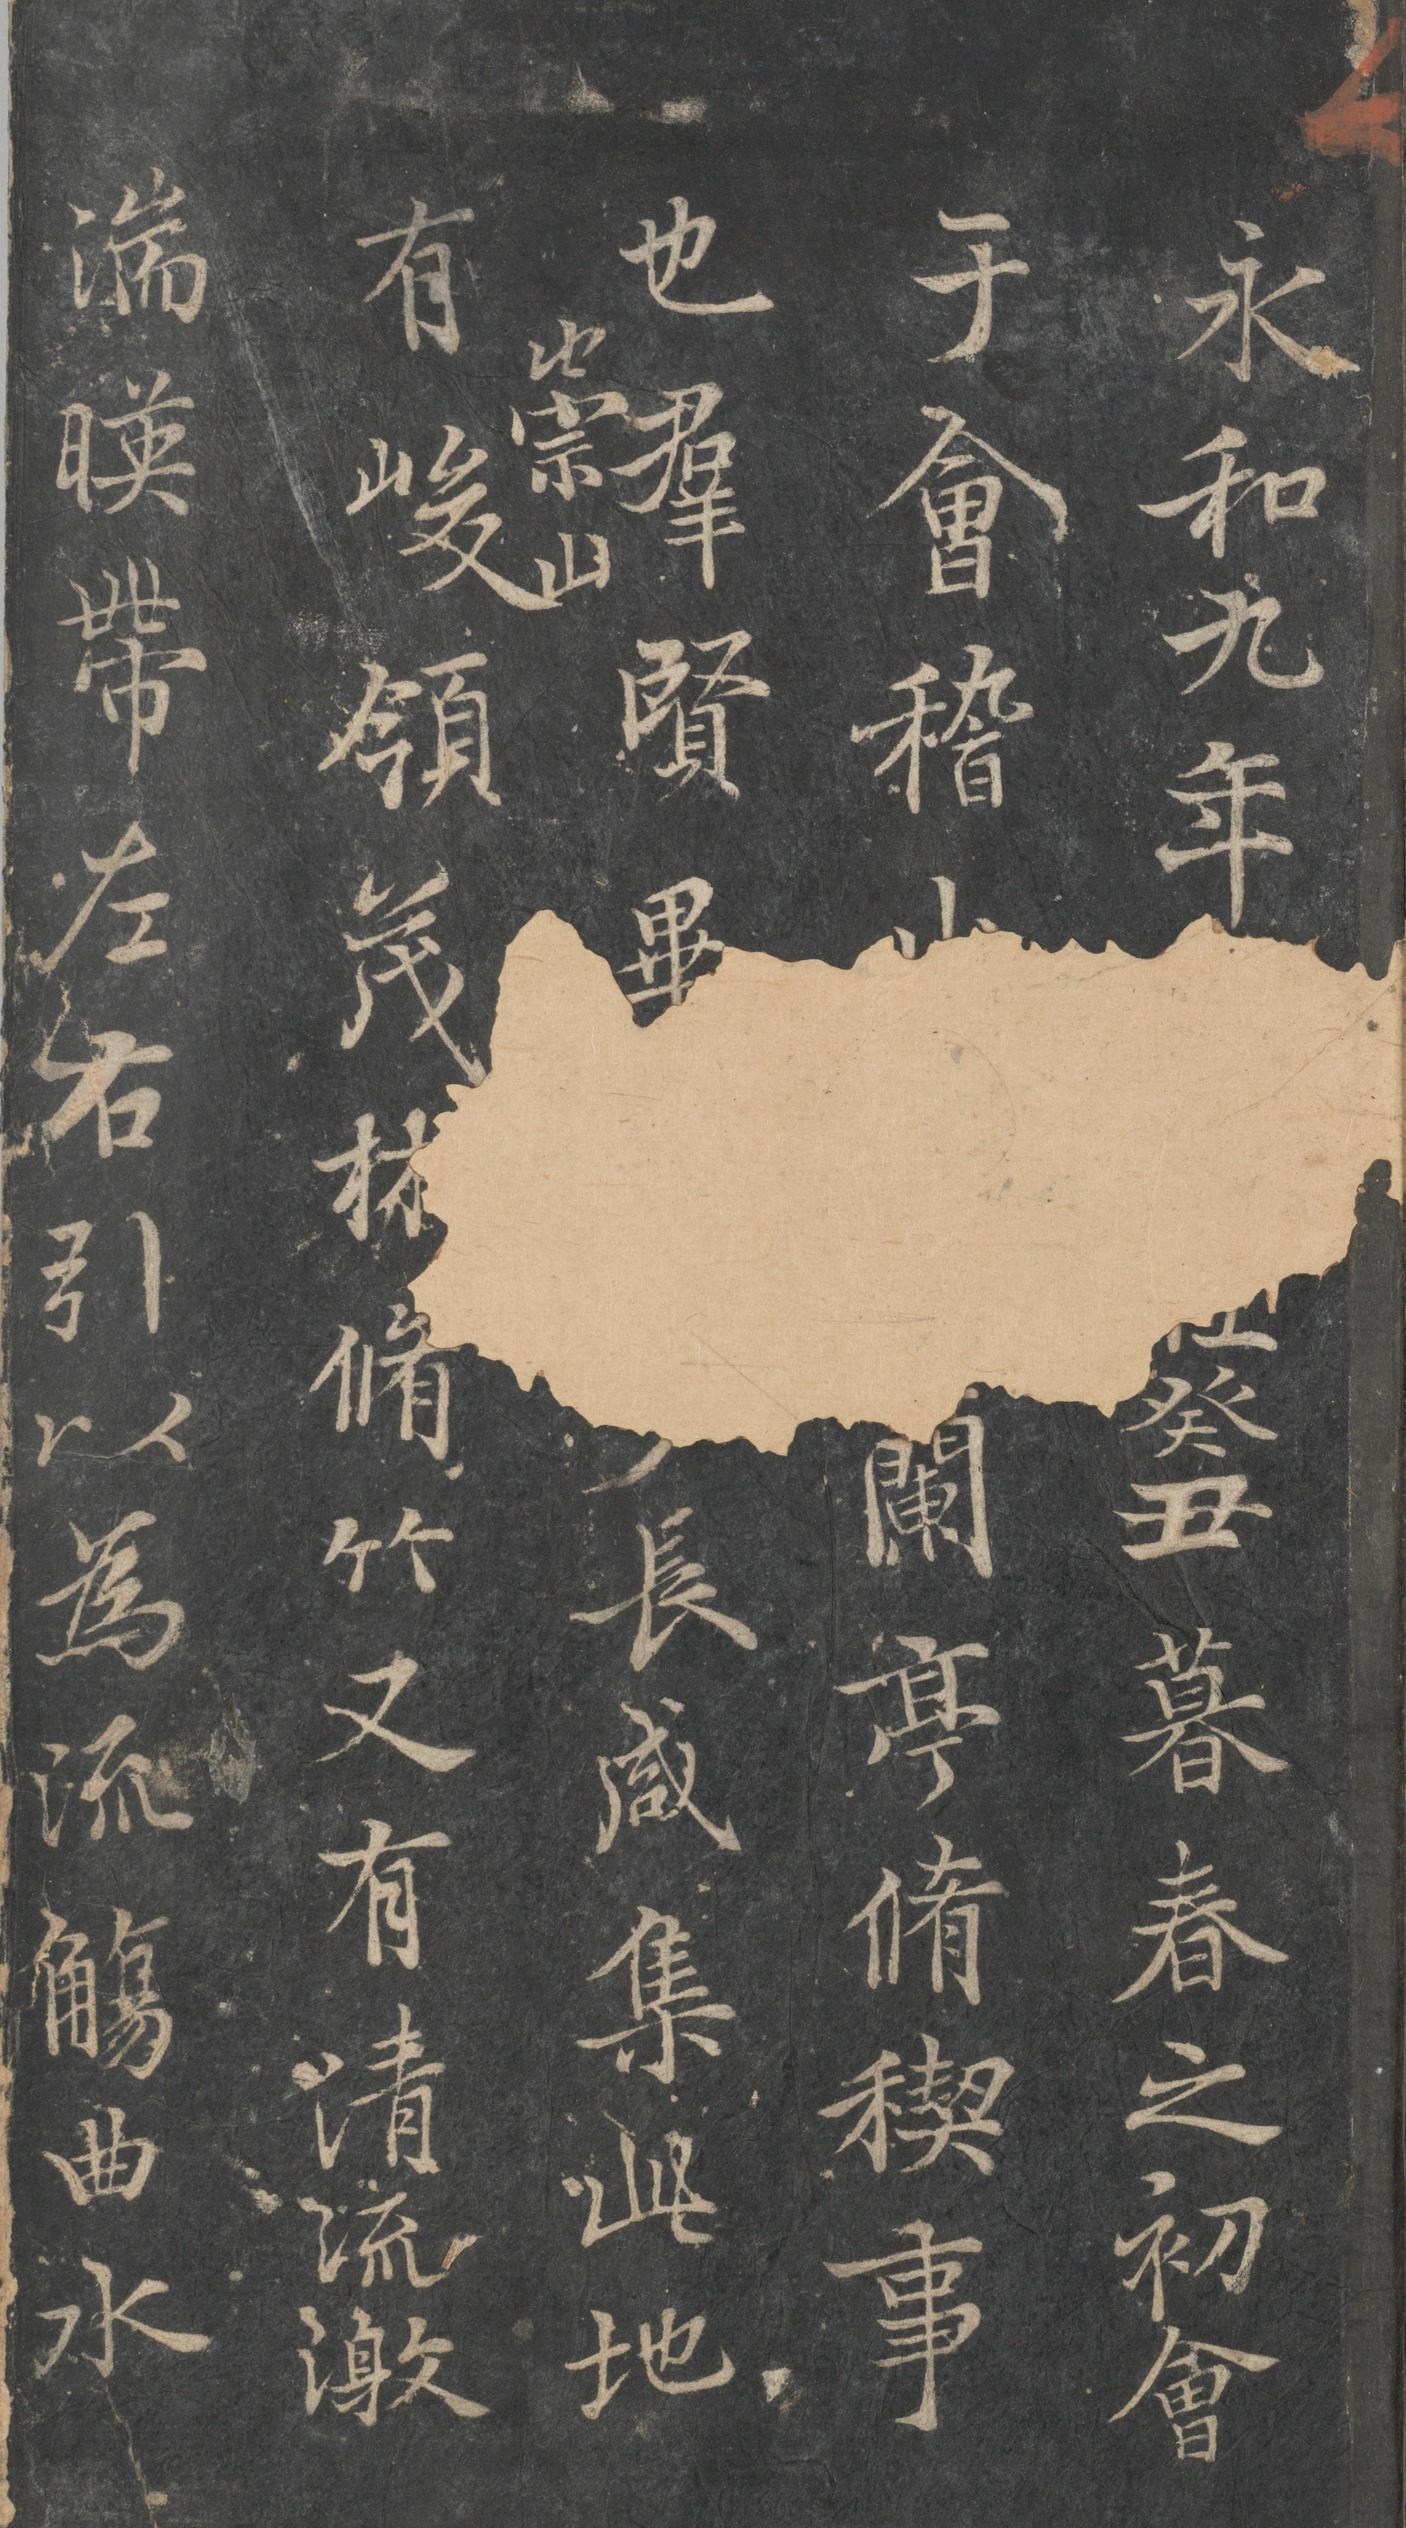 永和九年癸丑暮春之初會
于會稽山闌亭脩稧事
也羣賢畢長咸集此地
此崇山
有峻領茂林脩竹又有清流激
湍暎帶左右引以為流觴曲水